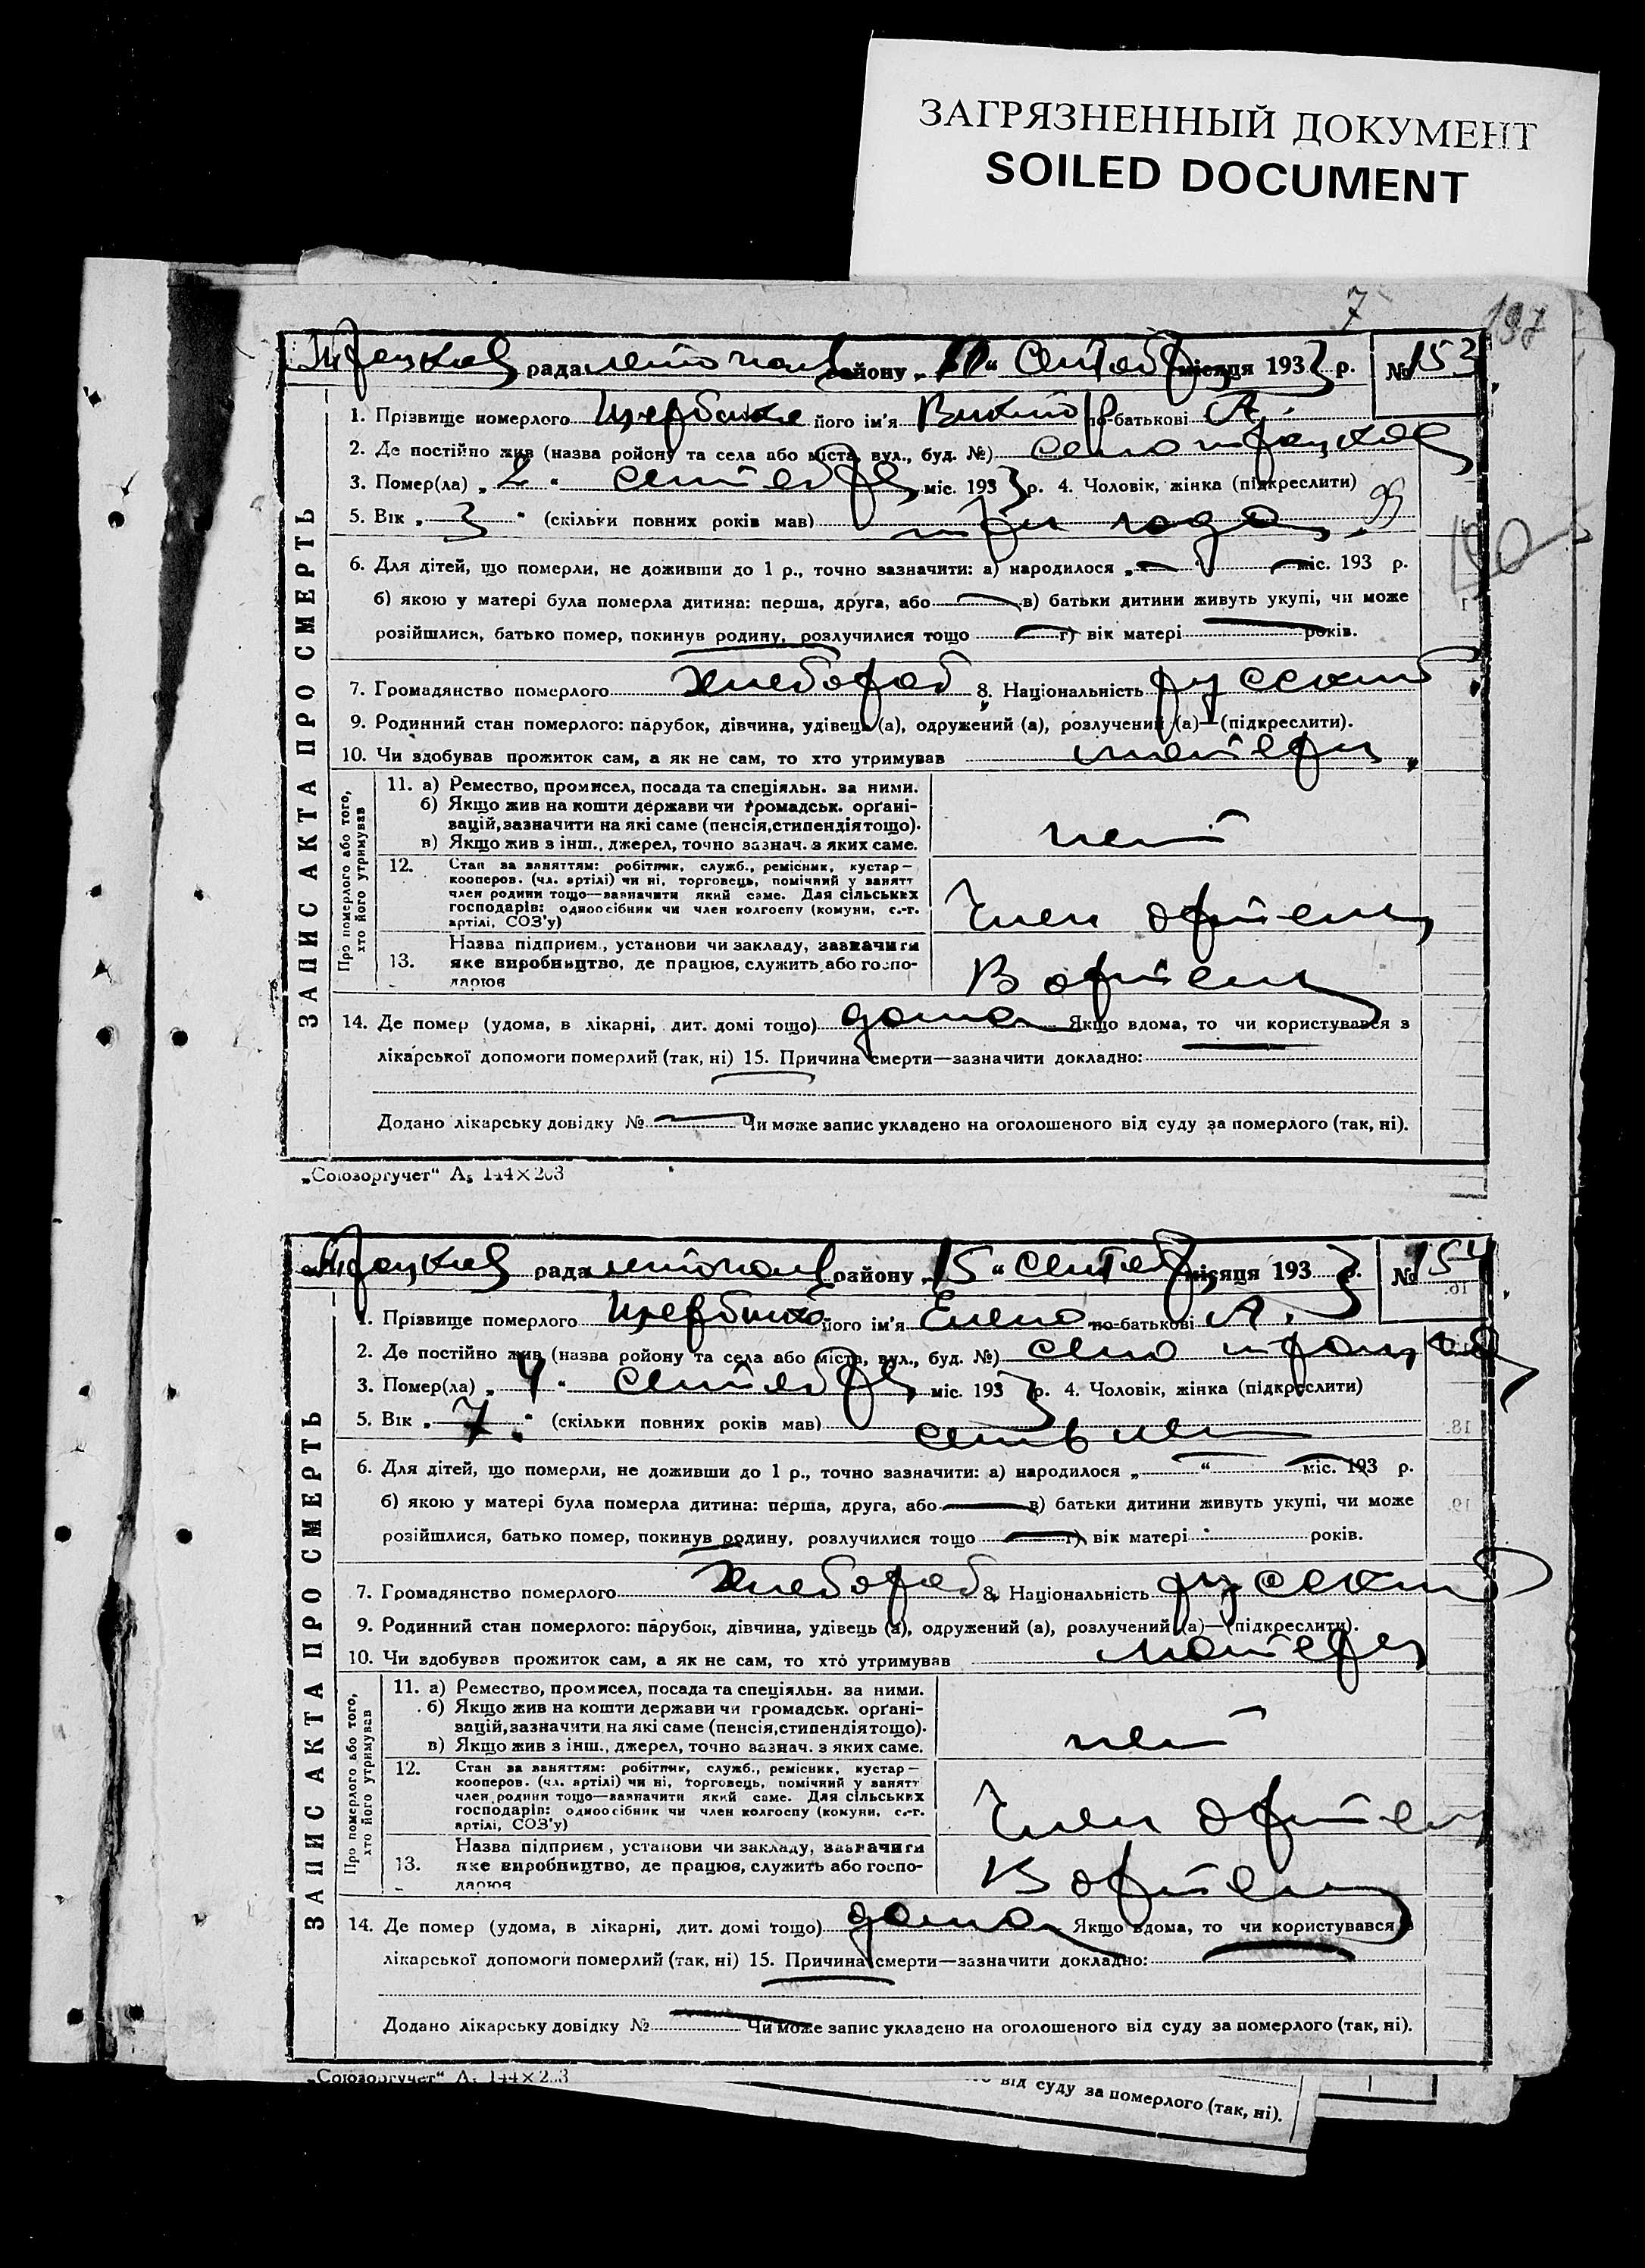 ЗАГРЯЗНЕННЫЙ ДОКУМЕНТ
SOILED DOCUMENT
7
197
рада району „ “ Сентяб місяця 1933 р. № 153
1. Прізвище померлого Щербина його ім'я Виктор по-батькові А.
2. Де постійно жив (назва району та села або міста, вул., буд. №) село
3. Помер(ла) „ 2 “ сентебря міс. 1933 р. 4. Чоловік, жінка (підкреслити)
5. Вік „ 3 “ (скільки повних років мав) три года
6. Для дітей, що померли, не доживши до 1 р., точно зазначити: а) народилося „ — “ — міс. 193 р.
б) якою у матері була померла дитина: перша, друга, або — в) батьки дитини живуть укупі, чи може
розійшлися, батько помер, покинув родину, розлучилися тощо — г) вік матері — років.
7. Громадянство померлого хлебороб 8. Національність русский
9. Родинний стан померлого: парубок, дівчина, удівець (а), одружений (а), розлучений (а)—(підкреслити).
10. Чи здобував прожиток сам, а як не сам, то хто утримував матери
ЗАПИС АКТА ПРО СМЕРТЬ
Про померлого або того,
хто його утримував
11. а) Ремество, промисел, посада та спеціяльн. за ними.
б) Якщо жив на кошти держави чи громадськ. орґані-
зацій, зазначити на які саме (пенсія, стипендія тощо).
в) Якщо жив з інш., джерел, точно зазнач. з яких саме.
нет
12. Стан за заняттям: робітник, служб., ремісник, кустар—
кооперов. (чл. артілі) чи ні, торговець, помічний у занятт
член родини тощо—зазначити який саме. Для сільських
господарів: одноосібник чи член колгоспу (комуни, с.-г.
артілі, СОЗ'у)
Член артели
13. Назва підприєм., установи чи закладу, зазначити
яке виробництво, де працює, служить або госпо-
дарює
В артели
14. Де помер (удома, в лікарні, дит. домі тощо) дома Якщо вдома, то чи користувався з
лікарської допомоги померлий (так, ні) 15. Причина смерти—зазначити докладно:
Додано лікарську довідку № — Чи може запис укладено на оголошеного від суду за померлого (так, ні).
„Союзоргучет“ А5 144×203
рада району „ 15 “ Сентяб місяця 1933 р. № 154
1. Прізвище померлого Щербина його ім'я Елена по-батькові А.
2. Де постійно жив (назва району та села або міста, вул., буд. №) село
3. Помер(ла) „ 4 “ сентебря міс. 1933 р. 4. Чоловік, жінка (підкреслити)
5. Вік „ 7 “ (скільки повних років мав) семь лет
6. Для дітей, що померли, не доживши до 1 р., точно зазначити: а) народилося „ — “ — міс. 193 р.
б) якою у матері була померла дитина: перша, друга, або — в) батьки дитини живуть укупі, чи може
розійшлися, батько помер, покинув родину, розлучилися тощо — г) вік матері років.
7. Громадянство померлого Хлебороб 8. Національність русский
9. Родинний стан померлого: парубок, дівчина, удівець (а), одружений (а), розлучений (а)—(підкреслити).
10. Чи здобував прожиток сам, а як не сам, то хто утримував матери
ЗАПИС АКТА ПРО СМЕРТЬ
Про померлого або того,
хто його утримував
11. а) Ремество, промисел, посада та спеціяльн. за ними.
б) Якщо жив на кошти держави чи громадськ. орґані-
зацій, зазначити на які саме (пенсія, стипендія тощо).
в) Якщо жив з інш., джерел, точно зазнач. з яких саме.
нет
12. Стан за заняттям: робітник, служб., ремісник, кустар—
кооперов. (чл. артілі) чи ні, торговець, помічний у занятт
член родини тощо—зазначити який саме. Для сільських
господарів: одноосібник чи член колгоспу (комуни, с.-г.
артілі, СОЗ'у)
Член артели
13. Назва підприєм., установи чи закладу, зазначити
яке виробництво, де працює, служить або госпо-
дарює
В артели
14. Де помер (удома, в лікарні, дит. домі тощо) дома Якщо вдома, то чи користувався з
лікарської допомоги померлий (так, ні) 15. Причина смерти—зазначити докладно:
Додано лікарську довідку № — Чи може запис укладено на оголошеного від суду за померлого (так, ні).
„Союзоргучет“ А5 144×203
від суду за померлого (так, ні).